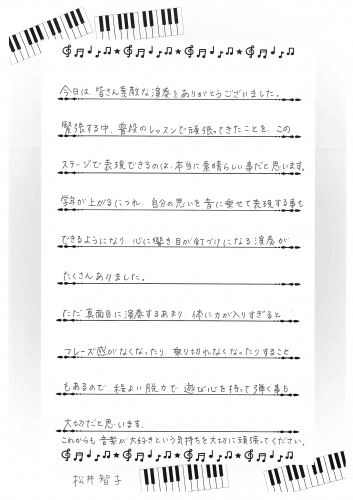 今日は、皆さん素敵な演奏をありがとうございました。
緊張する中、普段のレッスンで頑張ってきたことを、この
ステージで表現できるのは、本当に素晴らしい事だと思います。
学年が上がるにつれ、自分の思いを音に乗せて表現する事も
できるようになり、心に響き目が釘づけになる演奏が
たくさんありました。
ただ真面目に演奏するあまり、体に力が入りすぎると
フレーズ感がなくなったり、乗り切れなくなったりすること
もあるので、程よい脱力で、遊び心を持って弾く事も
大切だと思います。
これからも音楽が大好きという気持ちを大切に頑張ってください。
松井智子